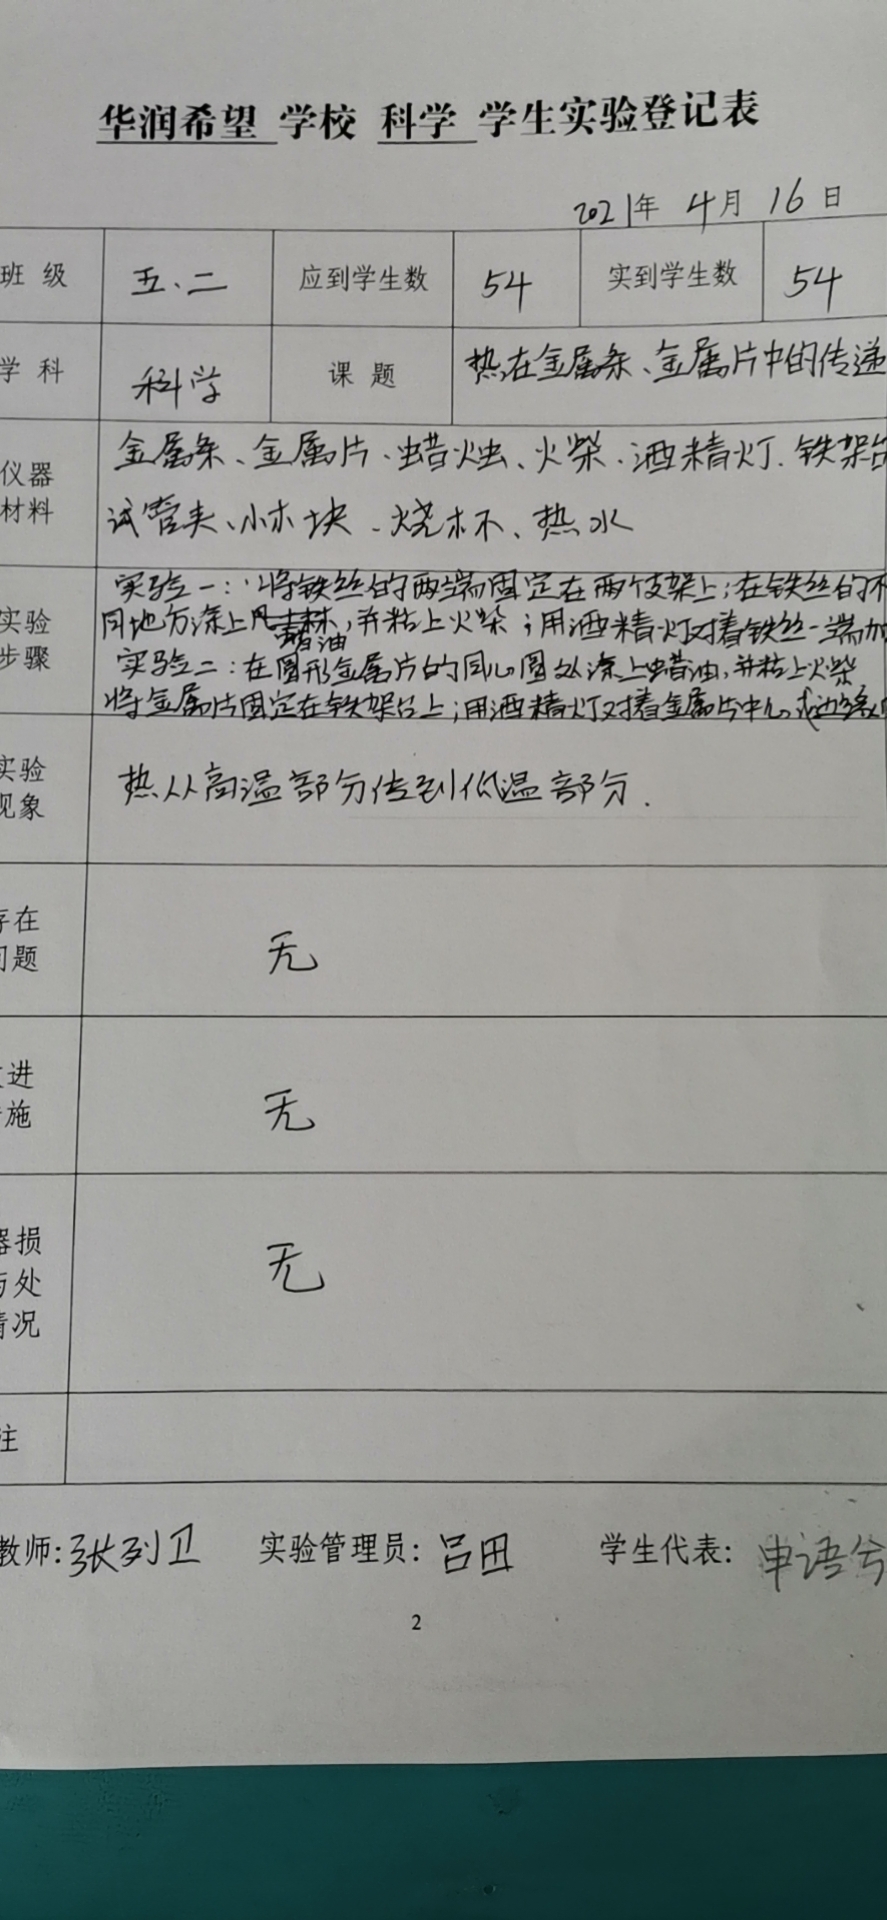 华润希望 学校 科学 学生实验登记表
2021年 4月 16日
班 级 五.二 应到学生数 54 实到学生数 54
学 科 科学 课 题 热在金属条、金属片中的传递
仪器 金属条、金属片、蜡烛、火柴、酒精灯、铁架台
材料 试管夹、小木块、烧杯、热水
实验一：将铁丝的两端固定在两个支架上；在铁丝的不
实验 同地方涂上凡士林，并粘上火柴；用酒精灯对着铁丝一端加
蜡油
步骤 实验二：在圆形金属片的同心圆处涂上蜡油，并粘上火柴，
将金属片固定在铁架台上；用酒精灯对着金属片中心或边缘
实验 热从高温部分传到低温部分.
现象
存在
问题 无
进
施 无
器损
与处 无
情况
注
教师：张列卫 实验管理员：吕田 学生代表：申语兮
2